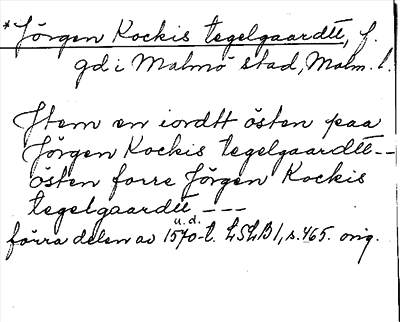 *Jörgen Kockis tegelgaardtt, f.
gd i Malmö stad, Malm. l.
Item en iordtt östen paa
Jörgen Kockis tegelgaardtt --
östen forre Jörgen Kockis
tegelgaardtt ---
u.d.
förra delen av 1570-t. LSLB 1, s. 465. orig.